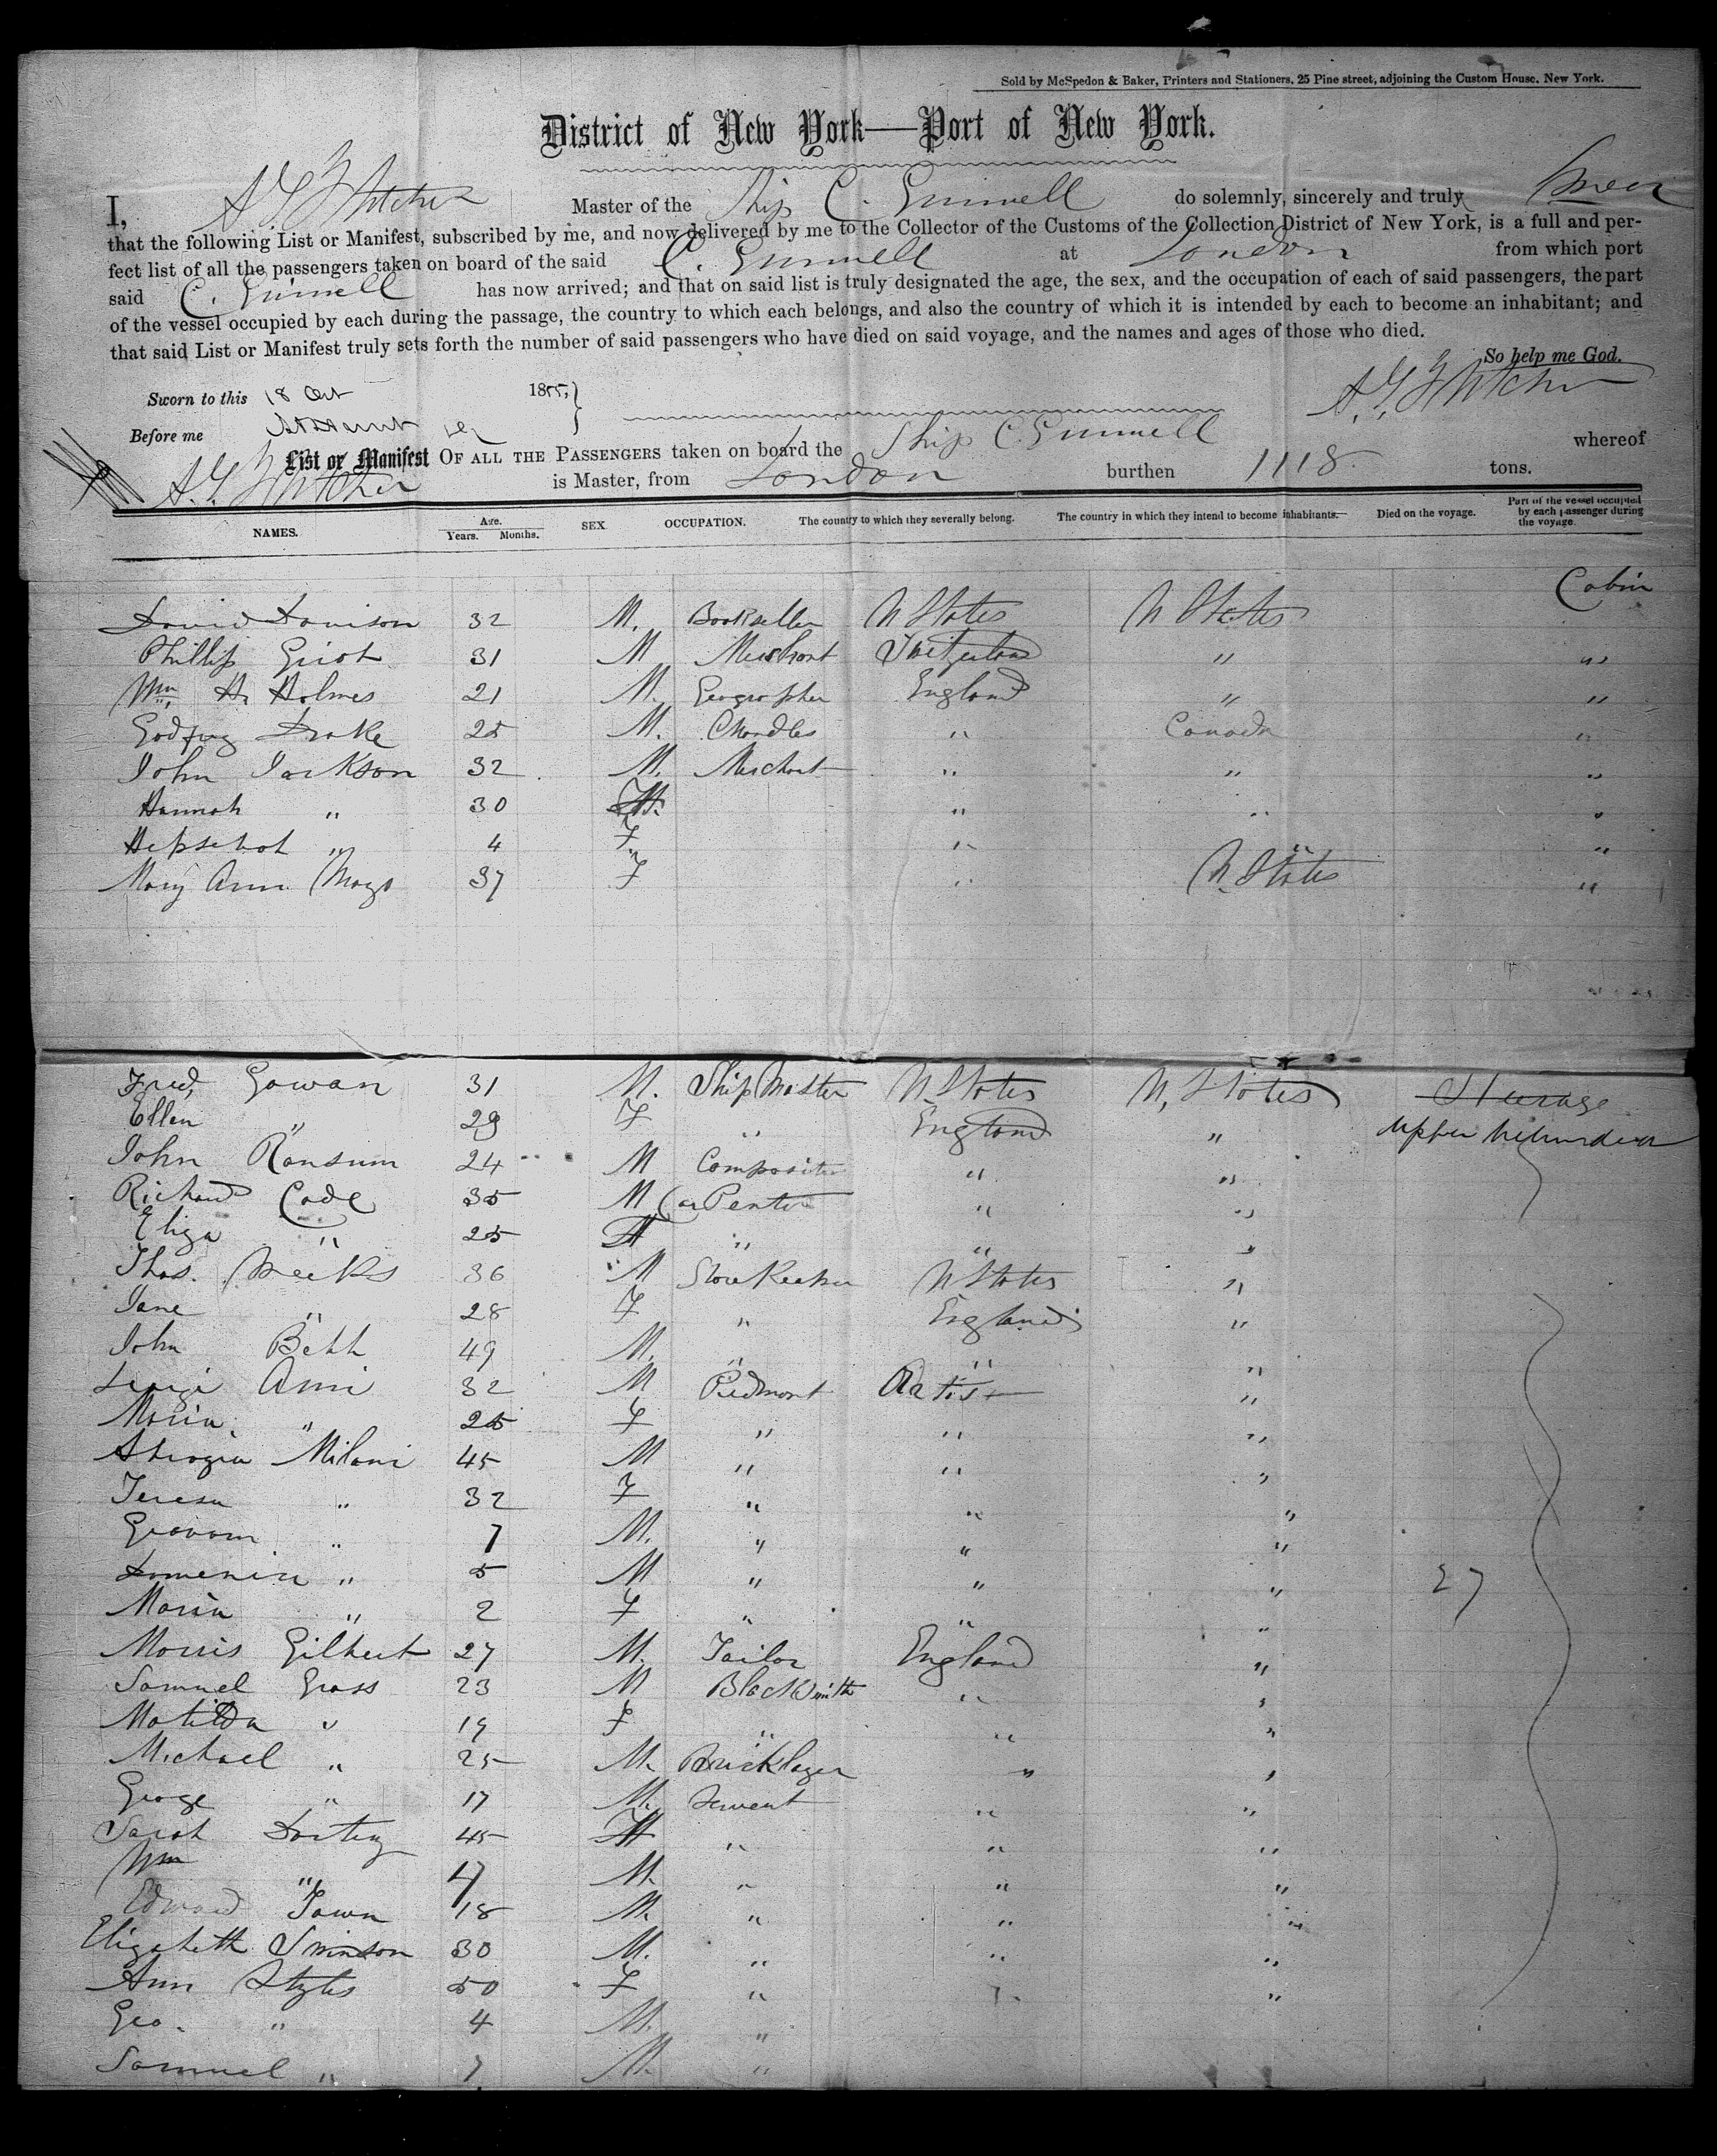 Sold by McSpedon & Baker, Printers and Stationers, 25 Pine street, adjoining the Custom House, New York.
District of New York—Port of New York.
I, Master of the Ship C. Grinnell do solemnly, sincerely and truly Swear
that the following List or Manifest, subscribed by me, and now delivered by me to the Collector of the Customs of the Collection District of New York, is a full and per-
fect list of all the passengers taken on board of the said C. Grinnell at London from which port
said C. Grinnell has now arrived; and that on said list is truly designated the age, the sex, and the occupation of each of said passengers, the part
of the vessel occupied by each during the passage, the country to which each belongs, and also the country of which it is intended by each to become an inhabitant; and
that said List or Manifest truly sets forth the number of said passengers who have died on said voyage, and the names and ages of those who died.
So help me God.
Sworn to this 18 Oct 1855,
Before me
List or Manifest OF ALL THE PASSENGERS taken on board the Ship C. Grinnell whereof
is Master, from London burthen 1118 tons.
NAMES. Age. Years. Months. SEX OCCUPATION. The country to which they severally belong. The country in which they intend to become inhabitants. Died on the voyage. Part of the vessel occupied by each passenger during the voyage.
Cabin
David Davison 32 M. Bookseller U States U States
Phillip Griot 31 M Merchant Switzerland " "
Wm. H. Holmes 21 M. Geographer England " "
Godfrey Drake 25 M. Chandler " Canada "
John Jackson 32 M. Merchant " " "
Hannah " 30 F " " "
Hepsebah " 4 F " " "
Mary Ann Mays 37 F " U. States "
Fred. Gowan 31 M. Ship Master U States U. States Steerage
Ellen " 29 F " England " Upper between decks
John Ransum 24 M Compositor " "
Richard Code 35 M Carpenter " "
Eliza " 25 F " " "
Thos. Meeks 36 M StoreKeeper U States "
Jane " 28 F " England "
John Bett 49 M. " " "
Luigi Ami 32 M Piedmont Artist "
Maria " 25 F " " "
Milani 45 M " " "
Teresa " 32 F " " "
" 7 M. " " "
" 5 M " " " 27
Maria " 2 F " " "
Morris Gilbert 27 M. Tailor England "
Samuel Grass 23 M Blacksmith " "
Matilda " 19 F " " "
Michael " 25 M. Bricklayer " "
George " 17 M. Servent " "
Sarah 45 F " " "
Wm " 17 M. " " "
Edward Town 18 M. " " "
Elizabeth Swinson 30 M. " " "
Ann Styles 50 F " " "
Geo. " 4 M. "
Samuel " 7 M. "